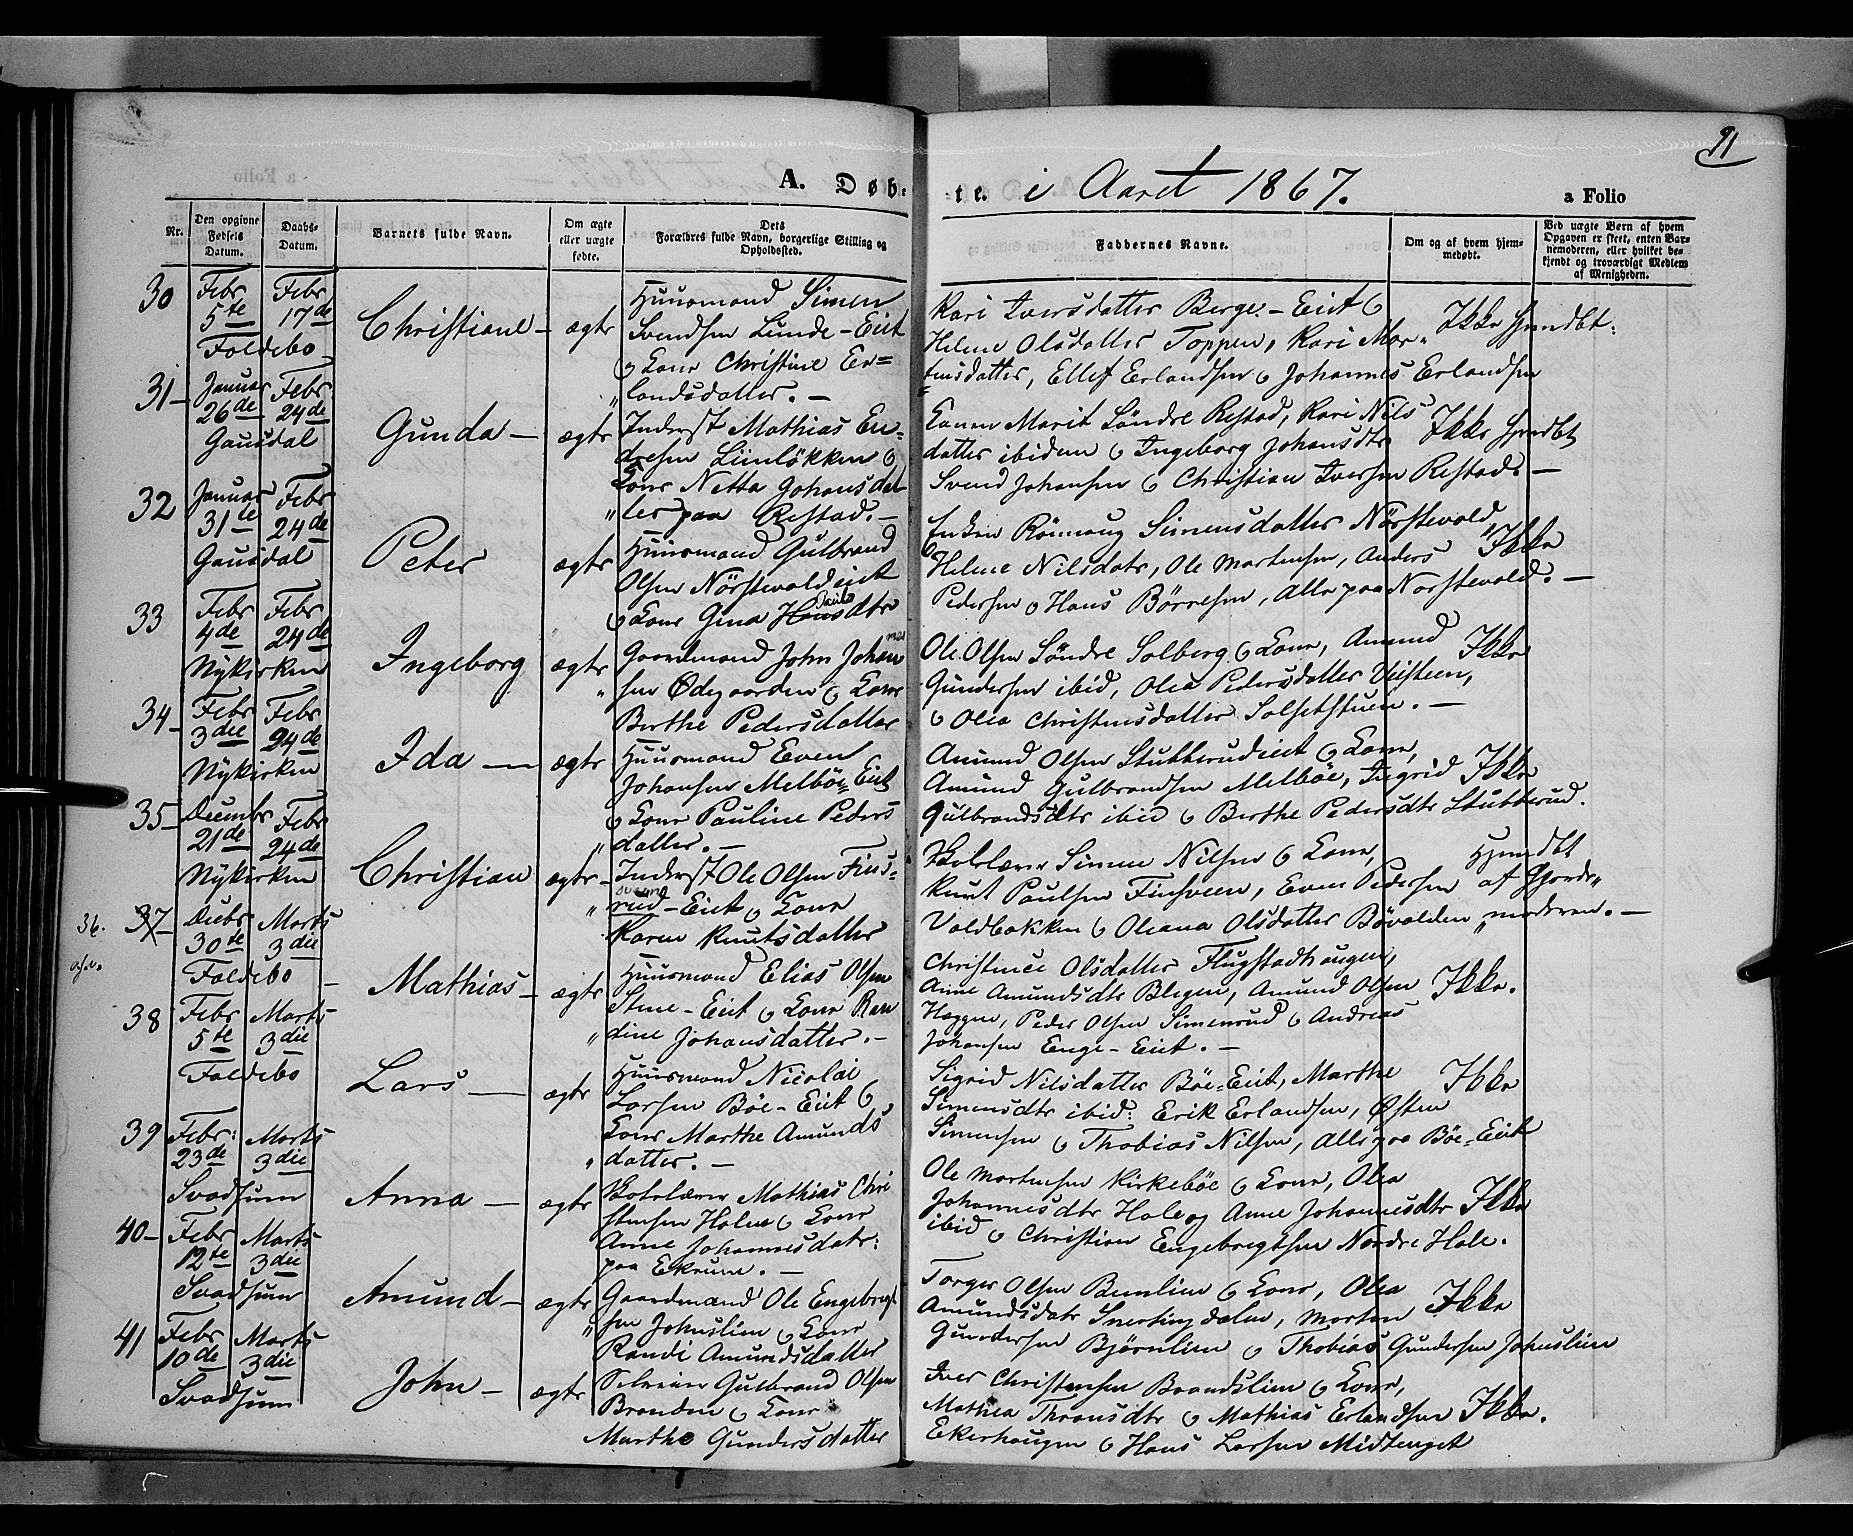 91
A. Døb-
-te. i Aaret 1867.
a Folio
Nr.
Den opgivne Fødsels Datum.
Daabs-Datum.
Barnets fulde Navn.
Om ægte eller uægte fødte.
Dets Forældres fulde Navn, borgerlige Stilling og Opholdssted.
Faddernes Navne.
Om og af hvem hjem-meddøbt.
Ved uægte Børn af hvem Opgaven er skeet, enten Bar-nemoderen, eller hvilket be-kjendt og troværdigt Medlem af Menigheden.
30 Febr 5te Febr 17de
Foldebo
Christiane - ægte
Huusmand Simen
Svendsen Lunde-Eiet
Kone Christine Er=
landsdatter. -
Kari Iversdatter Berge-Eiet
Helene Olsdatter Toppen, Kari Mor-
tensdatter, Ellef Erlandsen Johannes Erlandsen
Ikke hjmdbt.
31- Januar 26de Febr 24de
Gausdal
Gunda - ægte
Inderst Mathias En-
dresen Liinløkken
Kone Netta Johansdat
ter paa Restad. -
Marit Søndre Restad, Kari Nils
datter ibidem Ingeborg Johansdtr
Svend Johansen Christian Iversen Restad. -
Ikke hjmdbt
32 Januar 31te Febr 24de
Gausdal
Peter ægte
Huusmand Gulbrand
Olsen Nörstevoldeiet
Kone Gina Hansdtr
Enken Rönnaug Simensdatter Nörstevold,
Helene Nilsdatr, Ole Martinsen, Anders
Pedersen Hans Börresen, Alle paa Norstevold. -
Ikke
33 Febr 4de Febr 24de
Nykirken
Ingeborg ægte
Gaardmand John Johan
sen Ødegaarden Kone
Berthe Pedersdatter
Ole Olsen Søndre Solberg Kone, Amund
Gundersen ibid, Olea Pedersdatter Veisteen,
Olea Christensdatter Solsetstuen. -
Ikke
34- Febr 3die Febr 24de
Nykirken
Ida - ægte
Huusmand Even
Johansen Melbøe-Eiet
Kone Pauline Peders
datter. -
Amund Olsen Stubberudeiet Kone,
Amund Gulbrandsen Melbøe, Ingrid
Gulbrandsdtr ibid Berthe Pedersdtr Stubberud.
Ikke
35- Decembr 21de Febr 24de
Nykirken
Christian ægte
Inderst Ole Olsen Fins-
rud-Eiet Kone
Karen Knutsdatter
Skolelærer Simen Nilsen Kone,
Knut Paulsen Finsveen, Even Pedersen
Voldbakken Oleana Olsdatter Bøvolden
Hjmdbt
af Gjorde-
moderen. -
36. 37- Decbr 30te Marts 3die
Foldebo
Mathias - ægte
Huusmand Elias Olsen
Stene-Eiet Kone Ran
dine Johansdatter. -
Christence Olsdatter Flugstadhaugen,
Anne Amundsdtr Blegen, Amund Olsen
Haggen, Peder Olsen Simenrud Andreas
Johansen Enge-Eiet. -
Ikke.
38 Febr 5te Marts 3die
Foldebo
Lars - ægte
Huusmand Nicolai
Larsen Böe-Eiet
Kone Marthe Amunds
datter. -
Sigrid Nilsdatter Böe-Eiet, Marthe
Simensdtr ibid: Erik Erlandsen, Østen
Simensen Thobias Nilsen, Alle paa Böe-Eiet
Ikke
39 Febr: 23de Marts 3die
Svadsum
Anna - ægte
Skolelærer Mathias Chri
stensen Holen Kone
Anne Johannesdatr:
paa Ekrene. -
Ole Mortensen Kirkebøe Kone, Olea
Johannesdtr Hole og Anne Johannesdtr
ibid Christian Engebregtsen Nordre Hole.
Ikke
40- Febr 12te Marts 3die
Svadsum
Amund - ægte
Gaardmand Ole Engebregt
sen Johnslien Kone
Randi Amundsdatter
Torger Olsen Kone, Olea
Amundsdatr Snertingdalen, Morten
Gundersen Bjørnlien Thobias Gundersen Johnslien
Ikke
41 Febr 10de Marts 3die
Svadsum
John - ægte
Selveier Gulbrand Olsen
Branden Kone
Marthe Gundersdatter
Iver Christensen Brandslien Kone,
Mathea Thronsdtr Mathias Erlandsen
Ekerhaugen Hans Larsen Midtenget
Ikke.